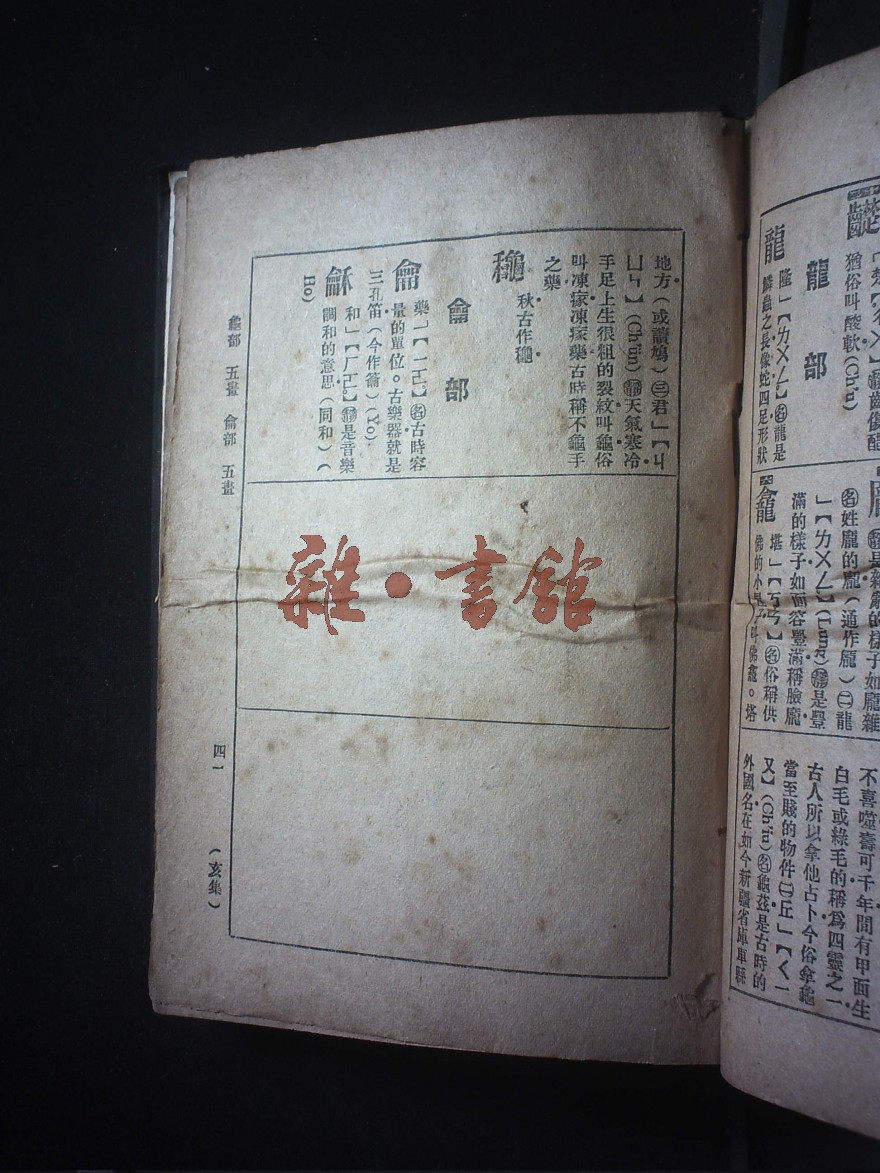 龍部
龍
隆」【ㄌㄨㄥ】㊔龍是
鱗蟲之長像蛇四足形狀
猶俗叫酸軟(Ch'u)
滿的樣子如面容豐滿稱臉龐
㊔姓龐的龐(通作龐)㊁龍
」【ㄌㄨㄥ】(Lung)㊔是豐
龕
堪」【ㄎㄢ】㊔俗稱供
佛的小
叫佛龕。塔
不喜噬壽可千年間有甲面生
白毛或綠毛的稱爲四靈之一
古人所以拿他占卜今俗拿龜
當至賤的物件㊁丘」【ㄑㄧ
又】(Ch'iu)㊔龜茲是古時的
外國名在如今新疆省庫車縣
地方(或讀鳩)㊂君」【ㄐ
ㄩㄣ】(Chün)㊔天氣寒冷
手足上生很粗的裂紋叫龜俗
叫凍瘃凍瘃藥古時稱不龜手
之藥
龝
秋古作龝
龠部
龠
藥」【ㄧㄛ】㊔古時容
量的單位。古樂器就是
三孔笛(今作籥)(Yo)
龢
和」【ㄏㄛ】㊔是音樂
調和的意思(同和)(
Ho)
龜部 五畫 龠部 五畫
四一
(亥集)
雜·書館